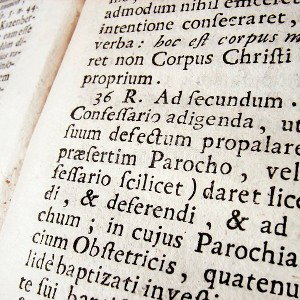 admodum nihil efficeret
intentione consecraret,
verba: hoc est corpus m
ret non Corpus Christi
proprium.
36 R. Ad secundum.
Confessario adigenda, ut
suum defectum propalare
præsertim Parocho, vel
fessario scilicet) daret lice
di, & deferendi, & ad
chum; in cujus Parochia
cium Obstetricis, quatenu
lidè baptizati inve
te sui bap